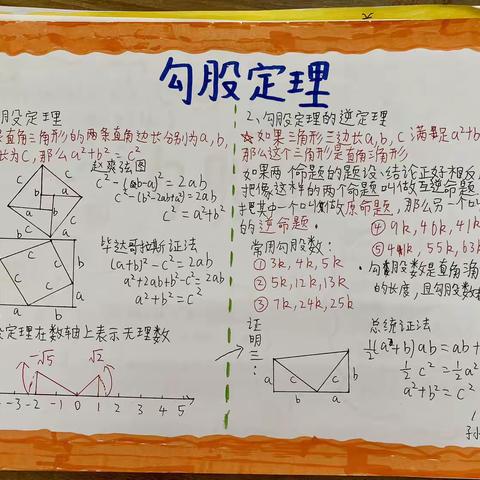 勾股定理
股定理
是直角三角形的两条直角边长分别为a,b,
长为c,那么a²+b²=c²
赵爽弦图
c²-(a-b)²=2ab
c²-(b²-2ab+a²)=2ab
c²=a²+b²
毕达哥拉斯证法
(a+b)²-c²=2ab
a²+2ab+b²-c²=2ab
a²+b²=c²
定理在数轴上表示无理数
-√5 √2
-3 -2 -1 0 1 2 3 4 5
2、勾股定理的逆定理
☆如果三角形三边长a,b,c满足a²+b²
那么这个三角形是直角三角形
如果两个命题的题设、结论正好相反
把像这样的两个命题叫做互逆命题
把其中一个叫做原命题,那么另一个叫
的逆命题.
常用勾股数:
① 3k,4k,5k
② 5k,12k,13k
③ 7k,24k,25k
④ 9k,40k,41k
55k,
勾股数是直角
的长度,且勾股数
证明三:
总统证法
½c²=½a²
a²+b²=c²